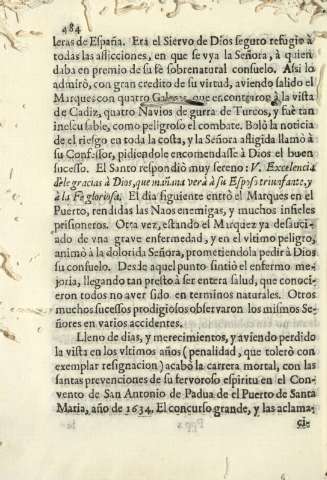 484
leras de España. Era el Siervo de Dios seguro refugio à
todas las aflicciones, en que se vya la Señora, à quien
daba en premio de su fè sobrenatural consuelo. Assi lo
admirò, con gran credito de su virtud, aviendo salido el
Marques con quatro Galeras, que encontraron à la vista
de Cadiz, quatro Navios de gurra de Turcos, y fuè tan
inescusable, como peligroso el combate. Bolò la noticia
de el riesgo en toda la costa, y la Señora afligida llamò à
su Confessor, pidiendole encomendasse à Dios el buen
sucesso. El Santo respondiò muy sereno: V. Excelencia
dele gracias à Dios, que mañana verà à su Esposo triunfante, y
à la Fè gloriosa. El dia siguiente entrò el Marques en el
Puerto, rendidas las Naos enemigas, y muchos infieles
prisioneros. Otra vez, estando el Marquez ya desauci-
ado de vna grave enfermedad, y en el vltimo peligro,
animò à la dolorida Señora, prometiendola pedir à Dios
su consuelo. Desde aquel punto sintiò el enfermo me-
joria, llegando tan presto à ser entera salud, que conoci-
eron todos no aver sido en terminos naturales. Otros
muchos sucessos prodigiosos observaron los mismos Se-
ñores en varios accidentes.
Lleno de dias, y merecimientos, y aviendo perdido
la vista en los vltimos años (penalidad, que tolerò con
exemplar resignacion) acabò la carrera mortal, con las
santas prevenciones de su fervoroso espiritu en el Con-
vento de San Antonio de Padua de el Puerto de Santa
Maria, año de 1634. El concurso grande, y las aclama-
cio-